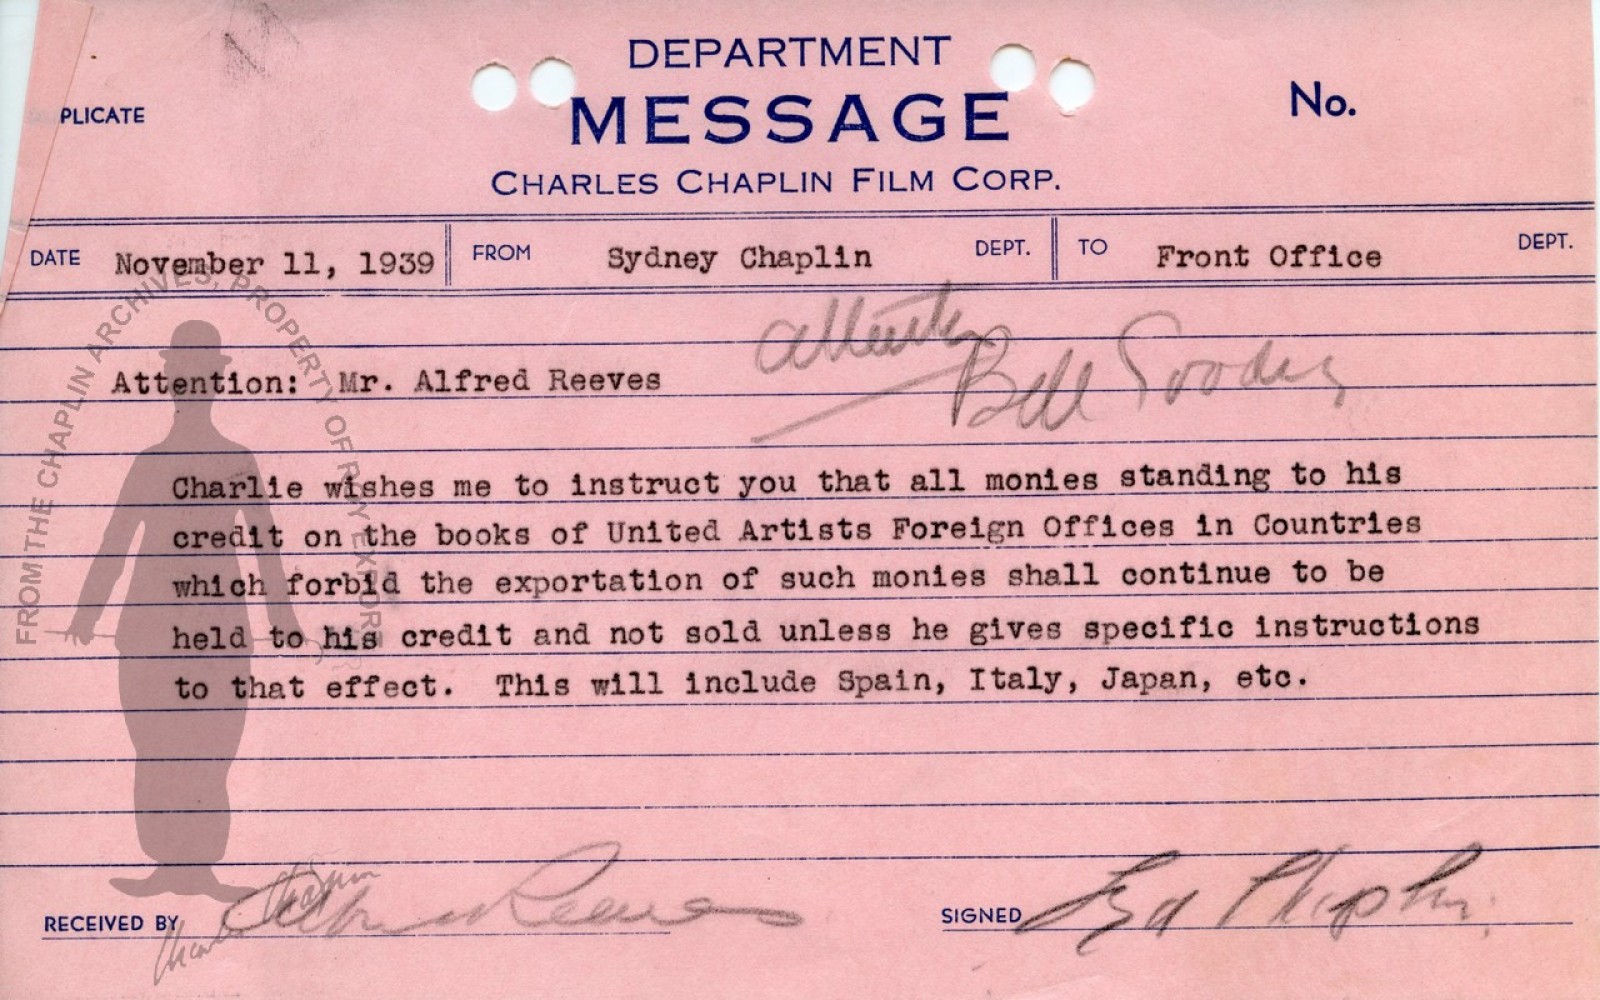 DEPARTMENT
PLICATE
MESSAGE
No.
CHARLES CHAPLIN FILM CORP.
DATE November 11, 1939 FROM Sydney Chaplin DEPT. TO Front Office DEPT.
Attention: Mr. Alfred Reeves
Charlie wishes me to instruct you that all monies standing to his
credit on the books of United Artists Foreign Offices in Countries
which forbid the exportation of such monies shall continue to be
held to his credit and not sold unless he gives specific instructions
to that effect. This will include Spain, Italy, Japan, etc.
RECEIVED BY Reeves
SIGNED Syd Chaplin
FROM THE CHAPLIN ARCHIVES, PROPERTY OF ROY EXPORT